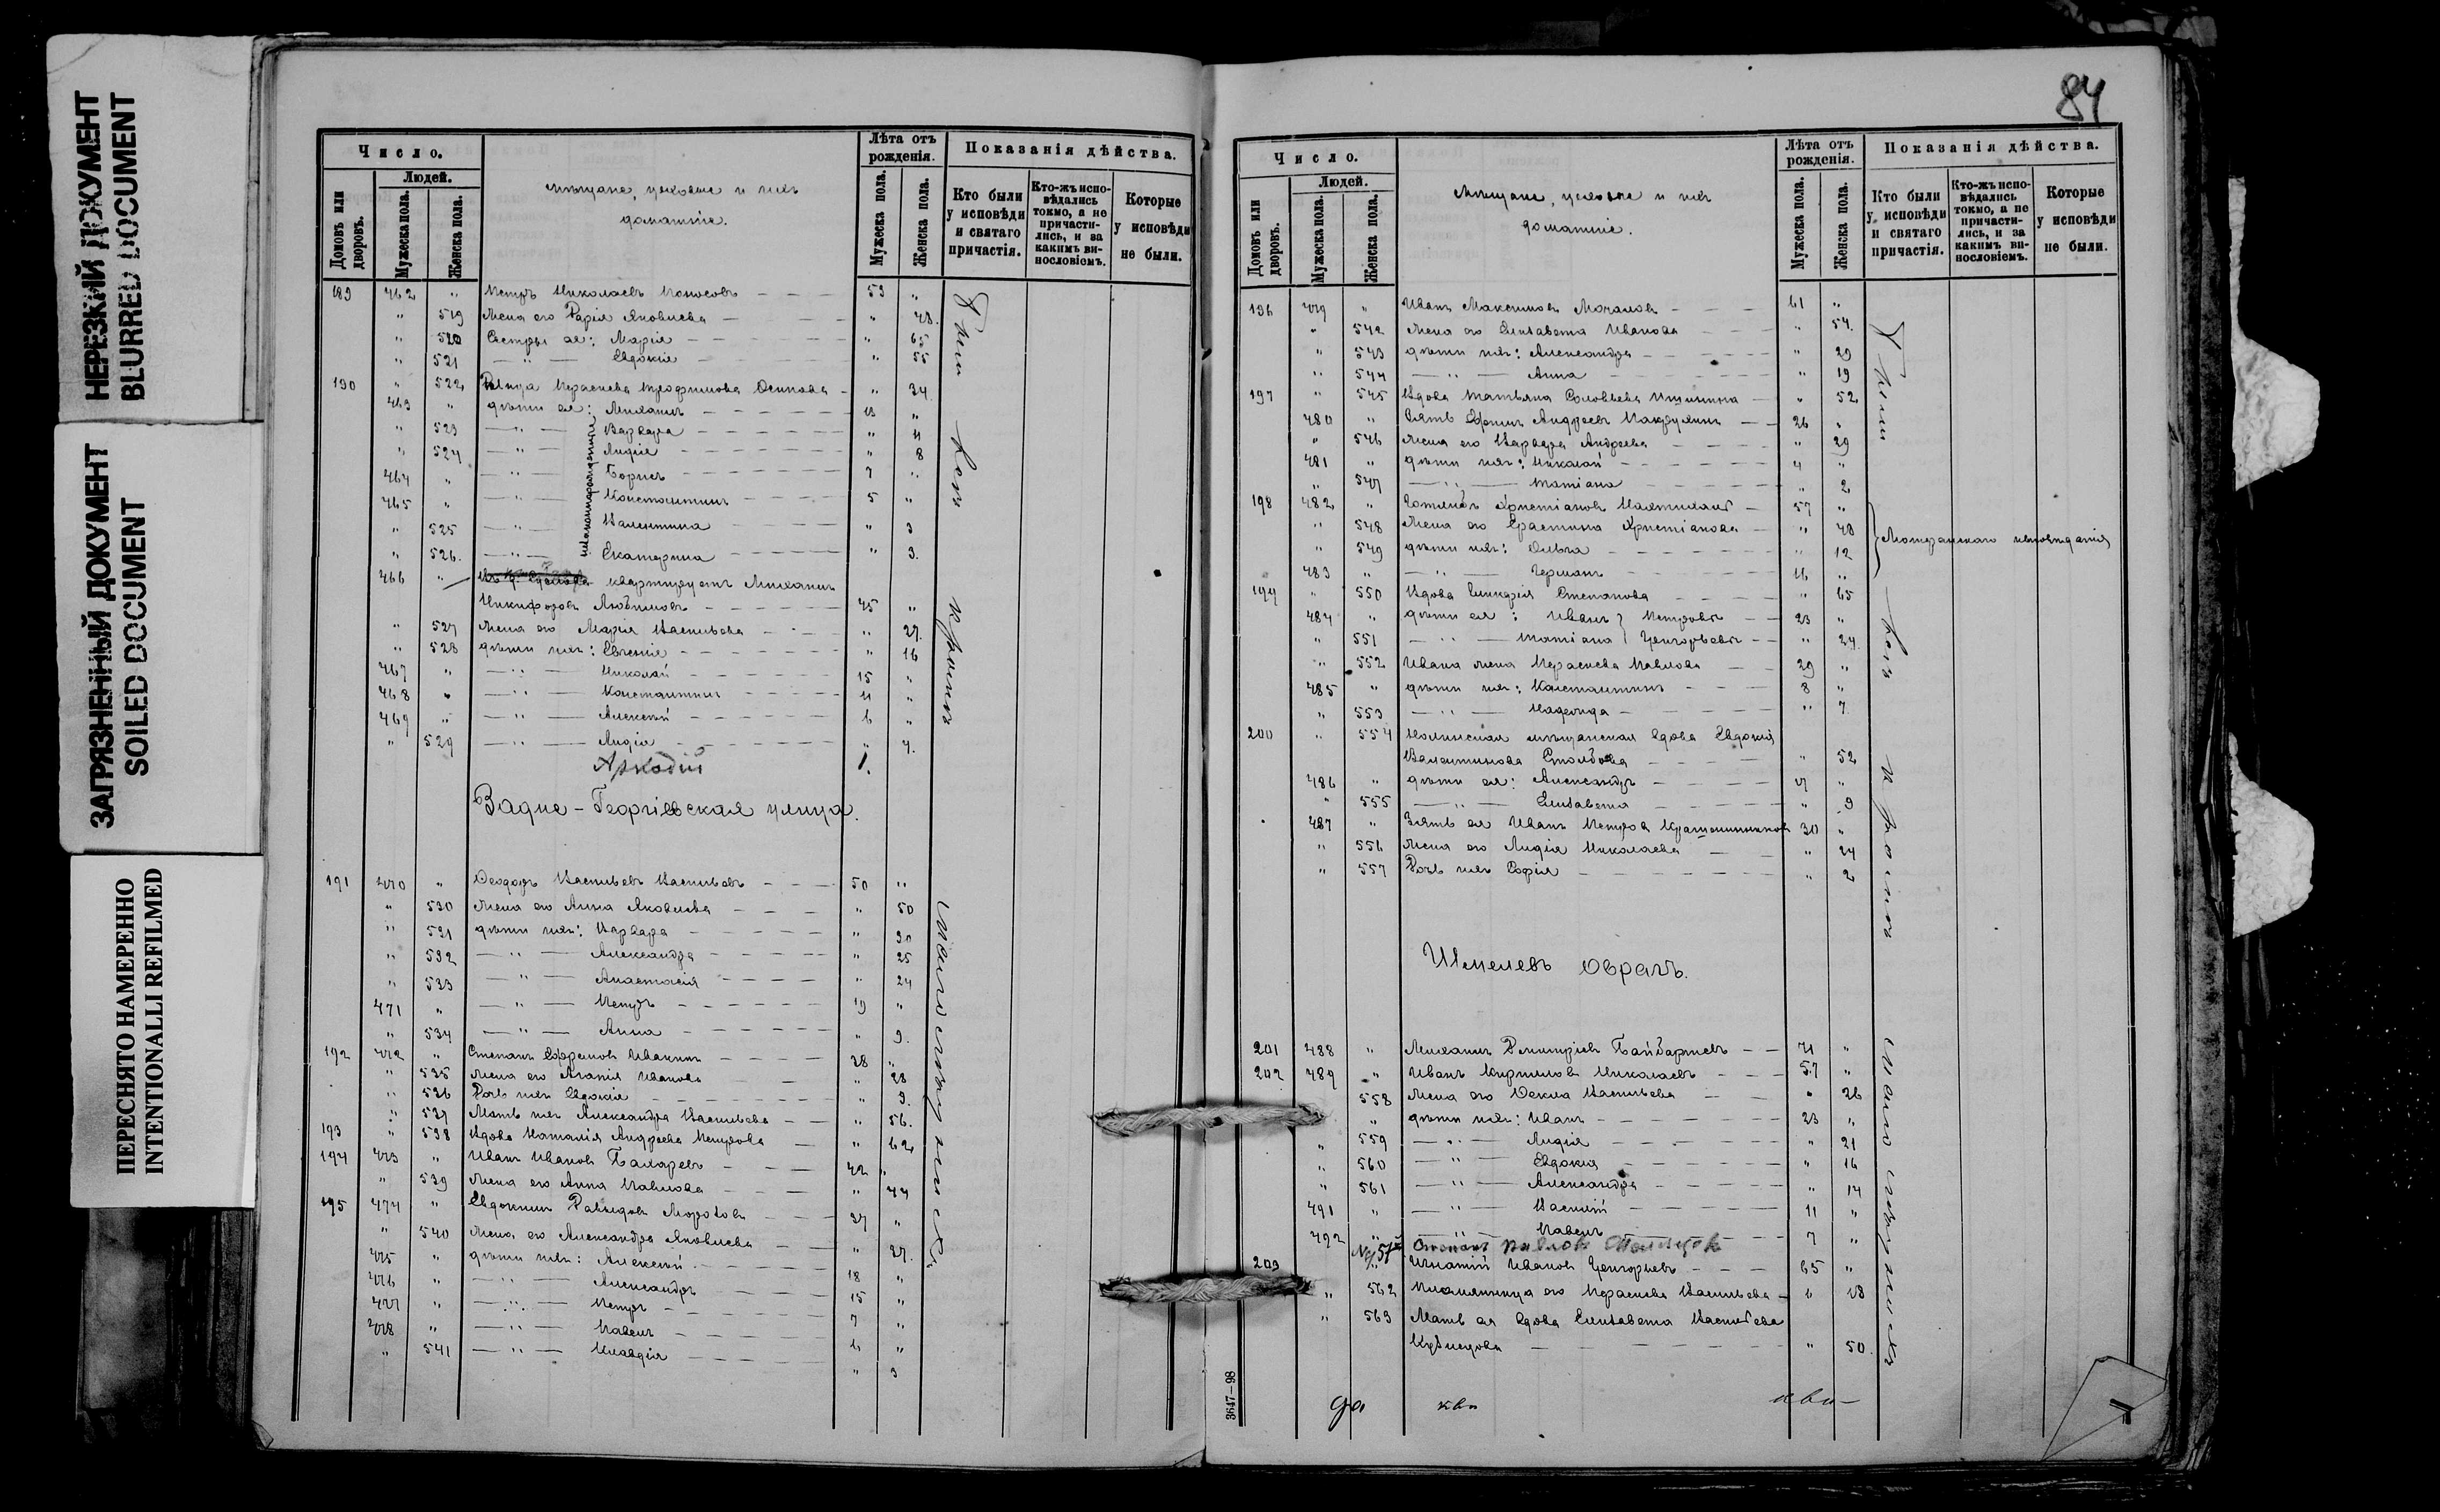 НЕРЕЗКИЙ ДОКУМЕНТ
BLURRED DOCUMENT
ЗАГРЯЗНЕННЫЙ ДОКУМЕНТ
SOILED DOCUMENT
ПЕРЕСНЯТО НАМЕРЕННО
INTENTIONALLI REFILMED
Число.
Людей.
Домовъ или дворовъ.
Мужеска пола.
Женска пола.
Мѣщане, цеховые и ихъ
домашніе.
Лѣта отъ рожденія.
Мужеска пола.
Женска пола.
Показанія дѣйства.
Кто были у исповѣди и святаго причастія.
Кто-жъ исповѣдались токмо, а не причастились, и за какимъ винословіемъ.
Которые у исповѣди не были.
189 462 " Петръ Николаевъ 53 "
" 519 Жена его Дарія Яковлева " 48.
" 520 Сестры ея: Марія " 65
" 521 — " — Евдокія " 55
190 " 522 Параскева Трофимова Осипова " 34
463 " дѣти ея: Михаилъ 13 "
" 523 — " — Варвара " 11
" 524 — " — Лидія " 8
464 " — " — Борисъ 7 "
465 " — " — Константинъ 5 "
" 525 — " — Валентина " 3
" 526. — " — Екатерина " 3.
466 " квартируетъ Михаилъ
Никифоровъ Любимовъ 45 "
" 527 Жена его Марія Васильева " 37.
" 528 дѣти ихъ: Евгенія " 16
467 " — " — Николай 15 "
468 " — " — Константинъ 11 "
469 " — " — Алексѣй 6 "
" 529 — " — Лидія " 4.
Аркадій 1.
Были
всѣ
Задне-Георгіевская улица.
191 470 " Ѳеодоръ Васильевъ Васильевъ 50 "
" 530 Жена его Анна Яковлева " 50
" 531 дѣти ихъ: Варвара " 30
" 532 — " — Александра " 25
" 533 — " — Анастасія " 24
471 " — " — Петръ 19 "
" 534 — " — Анна " 9.
192 472 " Степанъ Ефремовъ Ивакинъ 38 "
" 535 Жена его Агапія Иванова " 28
" 536 Дочь ихъ Евдокія " 9.
" 537 Мать ихъ Александра Васильева " 56.
193 " 538 Вдова Наталія Андреева Петрова " 62
194 473 " Иванъ Ивановъ Бахаревъ 42 "
" 539 Жена его Анна Павлова " 44
195 474 " Евдокимъ Давыдовъ Морозовъ 37 "
" 540 Жена его Александра Яковлева " 37.
475 " дѣти ихъ: Алексѣй 18 "
476 " — " — Александръ 15 "
477 " — " — Петръ 7 "
478 " — " — Павелъ 4 "
" 541 — " — Клавдія " 3
84
Число.
Людей.
Домовъ или дворовъ.
Мужеска пола.
Женска пола.
Мѣщане, цеховые и ихъ
домашніе.
Лѣта отъ рожденія.
Мужеска пола.
Женска пола.
Показанія дѣйства.
Кто были у исповѣди и святаго причастія.
Кто-жъ исповѣдались токмо, а не причастились, и за какимъ винословіемъ.
Которые у исповѣди не были.
196 479 " Иванъ Максимовъ Мочаловъ 61 "
" 542 Жена его Елизавета Иванова " 54.
" 543 дѣти ихъ: Александра " 29
" 544 — " — Анна " 19
197 " 545 Вдова Татьяна Соловьева " 52
480 " Зять Ефимъ Андреевъ 26 "
" 546 Жена его Варвара Андреева " 29
481 " дѣти ихъ: Николай 4 "
" 547 — " — Татіана " 2
198 482 " Христіановъ 57 "
" 548 Жена его Христіанова " 48
" 549 дѣти ихъ: Ольга " 12
483 " — " — Германъ 16 "
Лютеранскаго исповѣданія
199 " 550 Вдова Степанова " 65
484 " дѣти ея: Иванъ } Петровы 23 "
" 551 — " — Татіана } Григорьевы " 24
" 552 Ивана жена Параскева Павлова 29 "
485 " дѣти ихъ: Константинъ 8 "
" 553 — " — Надежда " 7
200 " 554 Нолинская мѣщанская вдова Евдокія
Валентинова Столбова " 52
486 " дѣти ея: Александръ 17 "
" 555 — " — Елизавета " 9
487 " Зять ея Иванъ Петровъ Крашенинниковъ 30 "
" 556 Жена его Лидія Николаева " 24
" 557 Дочь ихъ Софія " 2
Были
всѣ
Шмелевъ оврагъ.
201 488 " Михаилъ Димитріевъ 71 "
202 489 " Иванъ Кирилловъ Николаевъ 57 "
558 Жена его Ѳекла Васильева " 26
" дѣти ихъ: Иванъ 23 "
" 559 — " — Лидія " 21
" 560 — " — Евдокія " 16
" 561 — " — Александра " 14
491 " — " — Василій 11 "
492 " — " — Павелъ 7 "
Степанъ Павловъ
203 " Игнатій Ивановъ Григорьевъ 65 "
" 562 Племянница его Параскева Васильева " 18
" 563 Мать ея вдова Елизавета Васильева
Кузнецова " 50.
3647—98